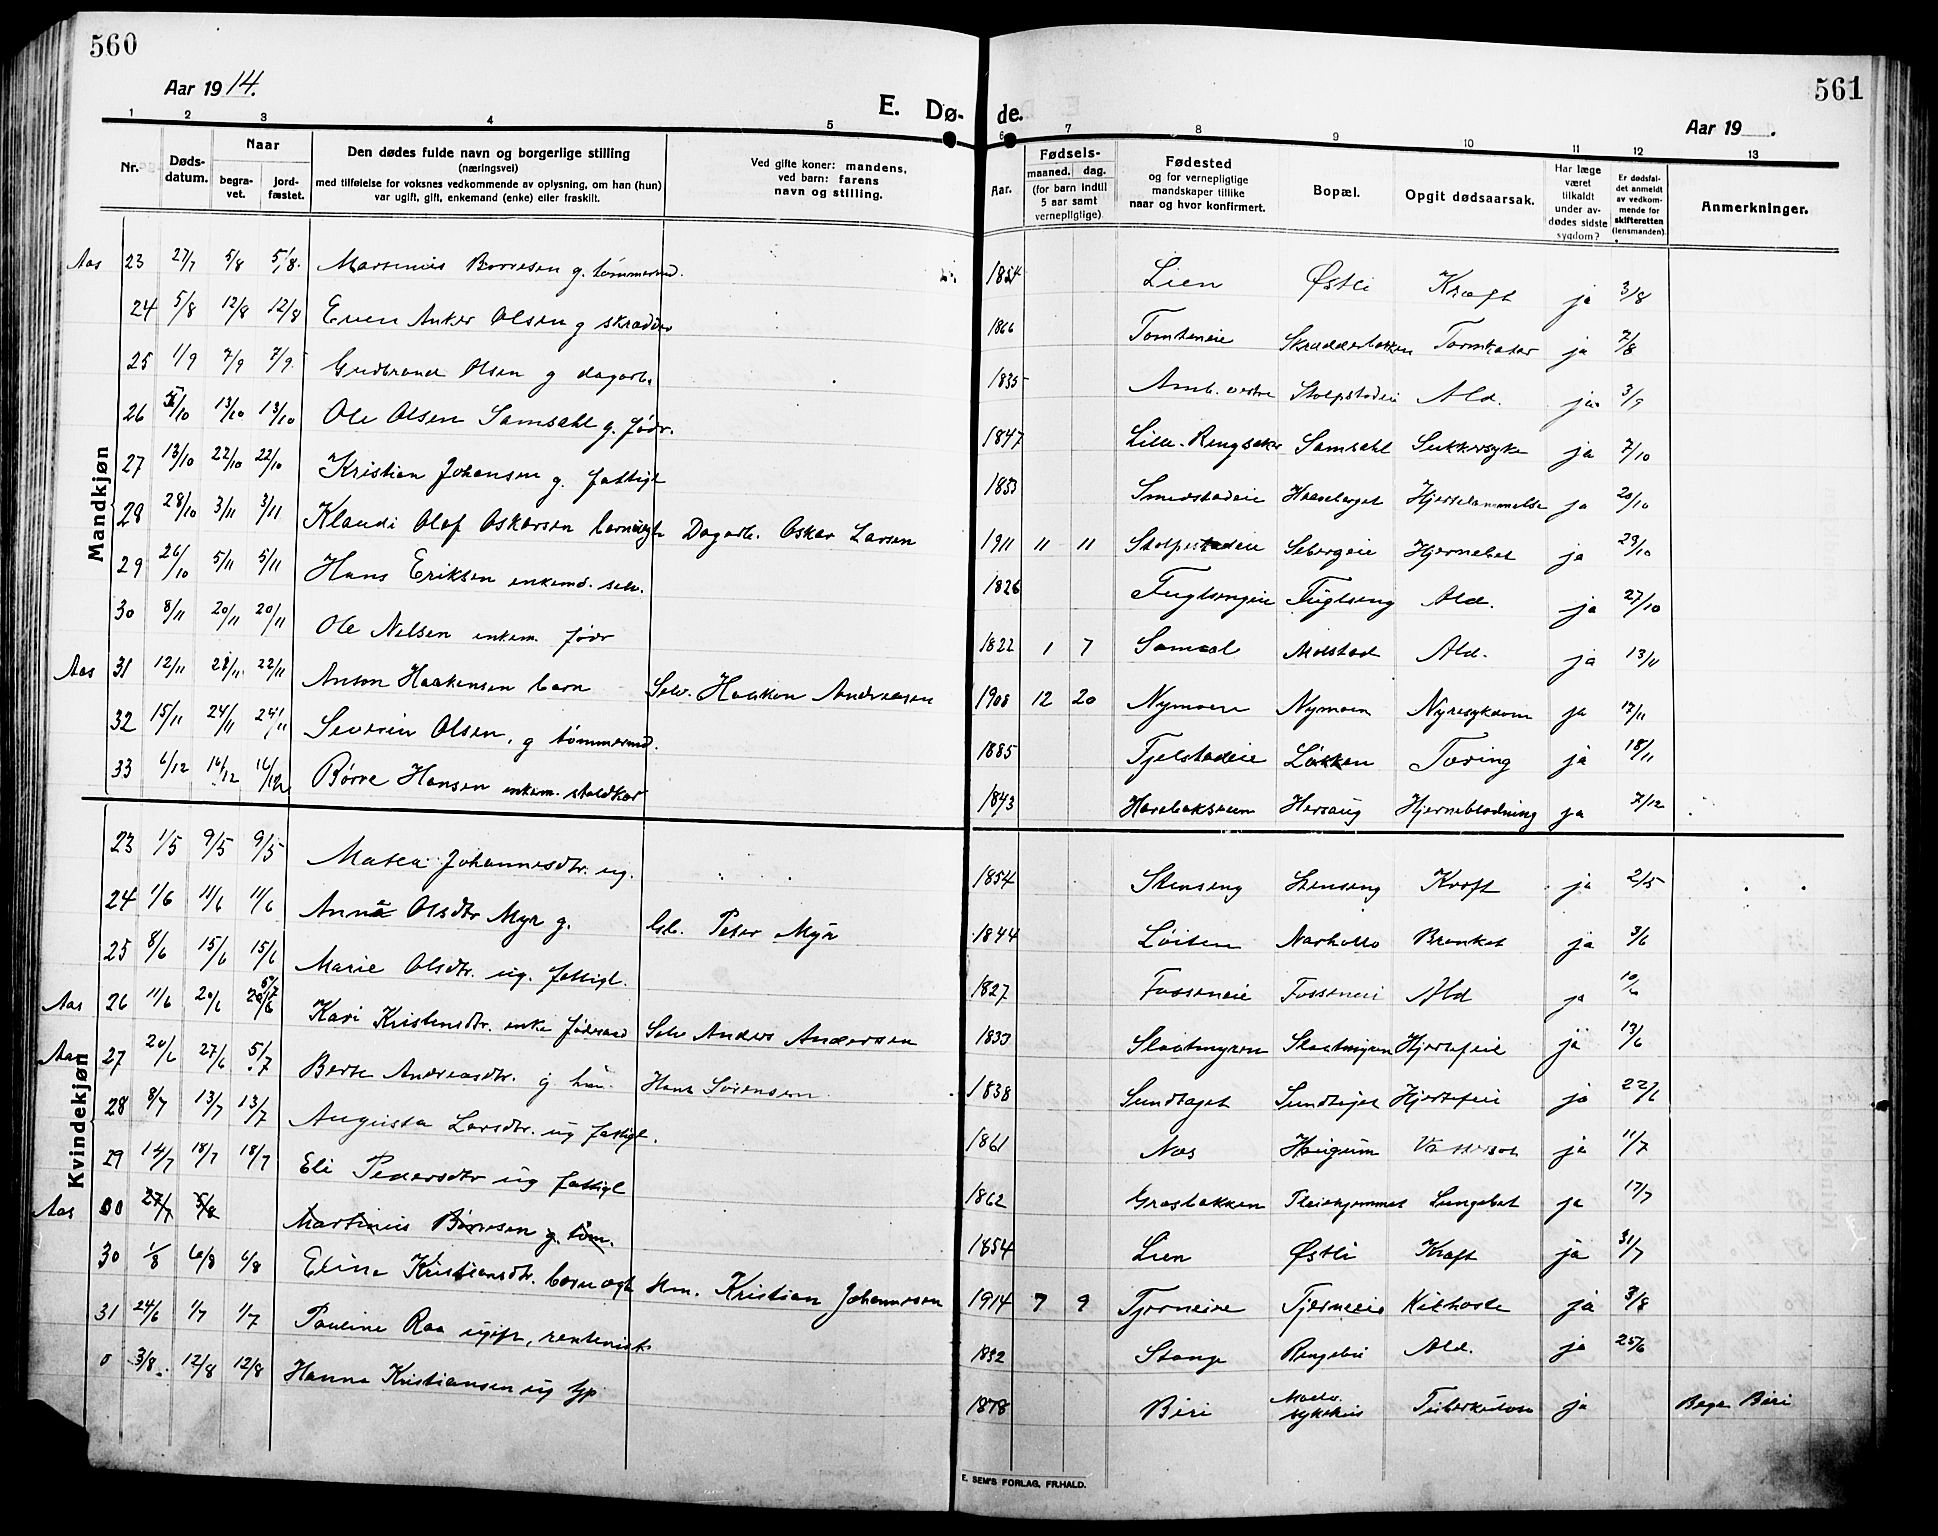 560
Aar 1914.
E. Dø-
1 2 3 4 5
Nr. Døds-datum. Naar begra-vet. jord-fæstet. Den dødes fulde navn og borgerlige stilling (næringsvei) med tilføielse for voksnes vedkommende av oplysning, om han (hun) var ugift, gift, enkemand (enke) eller fraskilt. Ved gifte koner: mandens, ved barn: farens navn og stilling.
Mandkjøn
Aas 23 27/7 5/8 5/8. Martinius Børresen g. tømmermd.
24 5/8 12/8 12/8 Even Anker Olsen g skrædder
25 1/9 7/9 7/9 Gudbrand Olsen g dagarb.
26 5/10 13/10 13/10 Ole Olsen Samsahl g. fødr.
27 13/10 22/10 22/10 Kristian Johansen g. fattigl
28 28/10 3/11 3/11 Klaudi Olaf Oskarsen barn Dagarb. Oskar Larsen
29 26/10 5/11 5/11 Hans Eriksen enkemd. selv.
30 8/11 20/11 20/11 Ole Nilsen enkem. fødr
Aas 31 12/11 22/11 22/11 Anton Haakensen barn Selv. Haakon Andreasen
32 15/11 24/11 24/11 Severin Olsen, g tømmermd.
33 6/12 16/12 16/12 Børre Hansen enkem. staldkar
Kvindekjøn
23 1/5 9/5 9/5 Matea Johannesdtr. ug.
24 1/6 11/6 11/6 Anna Olsdtr Myr g. Gb. Peter Myr
25 8/6 15/6 15/6 Marie Olsdtr. ug. fattigl.
Aas 26 11/6 20/6 5/7 Kari Kristensdtr. enke føderaad Selv Anders Andersen
Aas 27 20/6 27/6 5/7 Berte Andreasdtr. g hm. Hans Sørensen
28 8/7 13/7 13/7 Augusta Larsdtr. ug fattigl.
29 14/7 18/7 18/7 Eli Pedersdtr ug fattigl
Aas 30 27/7 5/8 Martinius Børresen g. tøm.
30 1/8 6/8 6/8 Eline Kristiansdtr. barn ægte Hm. Kristian Johannesen
31 24/6 1/7 1/7 Pauline Raa ugift, rentenist
0 3/8. 12/8 12/8 Hanna Kristiansen ug tjp
561
de.
Aar 19 .
6 7 8 9 10 11 12 13
Aar. Fødsels- maaned. dag. (for barn indtil 5 aar samt vernepligtige) Fødested og for vernepligtige mandskaper tillike naar og hvor konfirmert. Bopæl. Opgit dødsaarsak. Har læge været tilkaldt under av-dødes sidste sygdom? Er dødsfal-det anmeldt av vedkom-mende for skifteretten (lensmanden). Anmerkninger.
1854 Lien Østli Kræft ja 3/8
1866 Tomteneie Skrædderbakken Tarmkatar ja 7/8
1835 Amb. vestre Stolpstadeie Ald. ja 3/9
1847 Lille-Ringsaker Samsahl Sukkersyke ja 7/10
1853 Smedstadeie Haaseberget Hjertelammelse ja 20/10
1911 11 11 Stolpestadeie Sebergeie Hjernebet ja 29/10
1826 Fuglsengeie Fuglseng Ald. ja 27/10
1822 1 7 Samsal Molstad Ald. ja 13/11
1908 12 20 Nymoen Nymoen Nyresykdom ja 17/11
1885 Tjelstadeie Løkken Tæring ja 18/11
1843 Hersaug Hjerneblødning ja 7/12
1854 Stenseng Stenseng Kræft ja 2/5
1844 Løiten Narholto Bronket ja 3/6
1827 Fosseneie Fosseneie Ald ja 10/6
1833 Slaatmyren Slaatmyren Hjertefeil ja 13/6
1838 Sundhaget Sundhaget Hjertefeil ja 22/6
1861 Næs Haugum Vattersot ja 11/7
1862 Græsbakken Pleiehjemmet Lungebet ja 17/7
1854 Lien Østli Kræft ja 31/7
1914 7 9 Tjerneeie Tjerneeie Kikhoste ja 3/8
1832 Stange Ringeby Ald. ja 25/6
1878 Biri Moelv sykehus Tuberkulose ja Begr Biri
E. SEM'S FORLAG, FR.HALD.